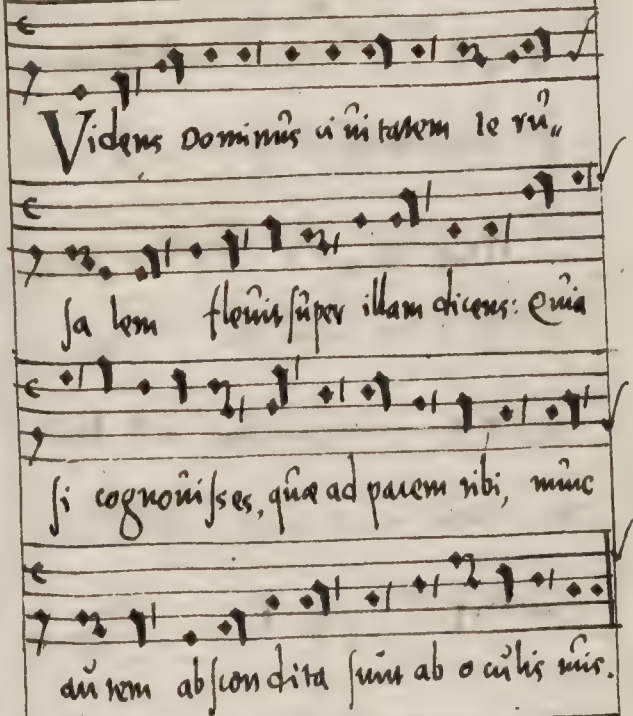 Videns Dominus ciuitatem Ieru„
salem fleuit super illam dicens: Quia
si cognouisses, quæ ad pacem tibi, nunc
autem abscondita sunt ab oculis tuis.